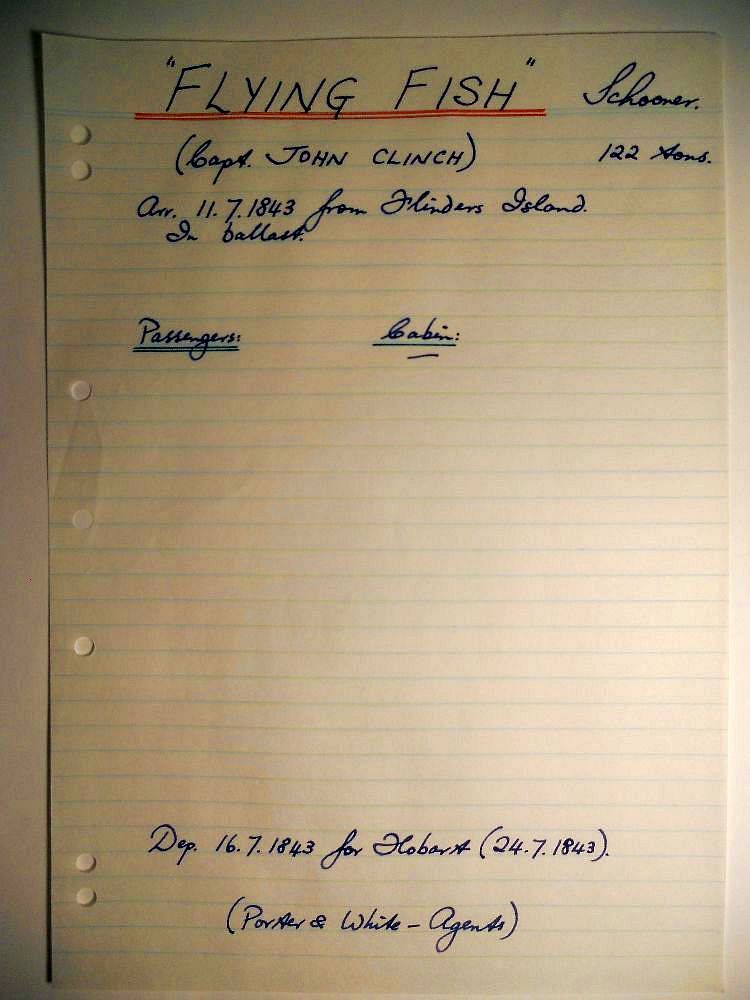 "FLYING FISH" Schooner.
(Capt. JOHN CLINCH) 122 tons.
Arr. 11.7.1843 from Flinders Island.
In ballast.
Passengers: Cabin:
Dep. 16.7.1843 for Hobart (24.7.1843).
(Porter & White - Agents)